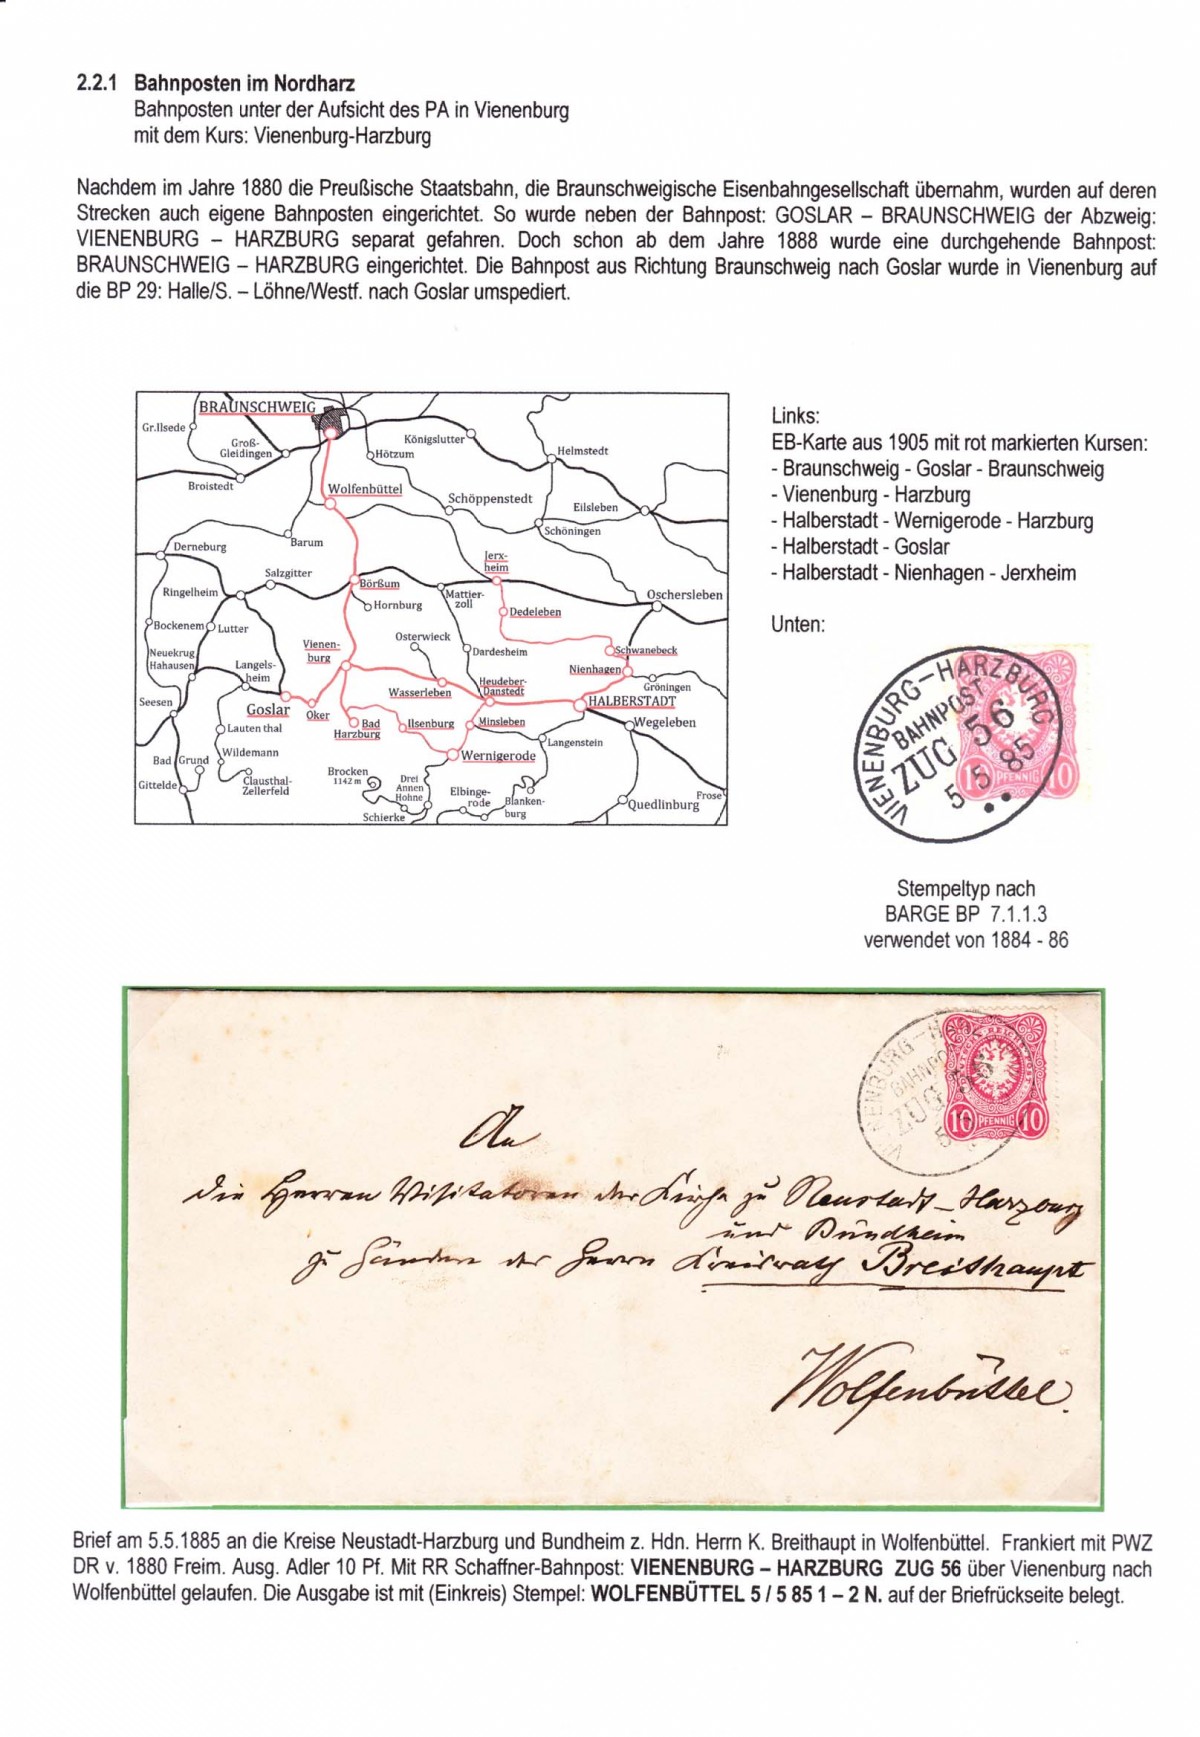 2.2.1 Bahnposten im Nordharz
Bahnposten unter der Aufsicht des PA in Vienenburg
mit dem Kurs: Vienenburg-Harzburg
Nachdem im Jahre 1880 die Preußische Staatsbahn, die Braunschweigische Eisenbahngesellschaft übernahm, wurden auf deren
Strecken auch eigene Bahnposten eingerichtet. So wurde neben der Bahnpost: GOSLAR – BRAUNSCHWEIG der Abzweig:
VIENENBURG – HARZBURG separat gefahren. Doch schon ab dem Jahre 1888 wurde eine durchgehende Bahnpost:
BRAUNSCHWEIG – HARZBURG eingerichtet. Die Bahnpost aus Richtung Braunschweig nach Goslar wurde in Vienenburg auf
die BP 29: Halle/S. – Löhne/Westf. nach Goslar umspediert.
BRAUNSCHWEIG
Gr.Ilsede
Groß-
Gleidingen
Königslutter
Hötzum
Helmstedt
Broistedt
Wolfenbüttel
Schöppenstedt
Eilsleben
Schöningen
Barum
Derneburg
Jerx-
heim
Salzgitter
Börßum
Ringelheim
Hornburg
Mattier-
zoll
Oschersleben
Dedeleben
Bockenem
Lutter
Osterwieck
Vienen-
burg
Dardesheim
Schwanebeck
Neuekrug
Hahausen
Langels-
heim
Nienhagen
Gröningen
Heudeber-
Danstedt
Wasserleben
Seesen
Goslar
Oker
HALBERSTADT
Bad
Harzburg
Ilsenburg
Minsleben
Wegeleben
Lauten thal
Langenstein
Wildemann
Wernigerode
Bad Grund
Brocken
1142 m
Drei
Annen
Hohne
Gittelde
Clausthal-
Zellerfeld
Elbinge-
rode
Blanken-
burg
Quedlinburg
Frose
Schierke
Links:
EB-Karte aus 1905 mit rot markierten Kursen:
- Braunschweig - Goslar - Braunschweig
- Vienenburg - Harzburg
- Halberstadt - Wernigerode - Harzburg
- Halberstadt - Goslar
- Halberstadt - Nienhagen - Jerxheim
Unten:
VIENENBURG–HARZBURG
BAHNPOST
ZUG 56
5 5 85
10 PFENNIG 10
Stempeltyp nach
BARGE BP 7.1.1.3
verwendet von 1884 - 86
BAHNPO
ZUG 56
10 PFENNIG 10
An
die Herren Visitatoren der Kirche zu Neustadt-Harzburg
und Bündheim
zu Händen des Herrn Kreisrath Breithaupt
Wolfenbüttel.
Brief am 5.5.1885 an die Kreise Neustadt-Harzburg und Bundheim z. Hdn. Herrn K. Breithaupt in Wolfenbüttel. Frankiert mit PWZ
DR v. 1880 Freim. Ausg. Adler 10 Pf. Mit RR Schaffner-Bahnpost: VIENENBURG – HARZBURG ZUG 56 über Vienenburg nach
Wolfenbüttel gelaufen. Die Ausgabe ist mit (Einkreis) Stempel: WOLFENBÜTTEL 5 / 5 85 1 – 2 N. auf der Briefrückseite belegt.